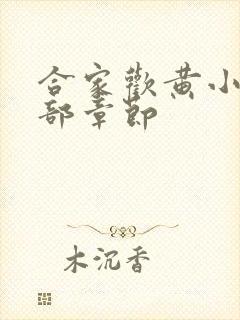 合家歡黄小
部章節
木沉香